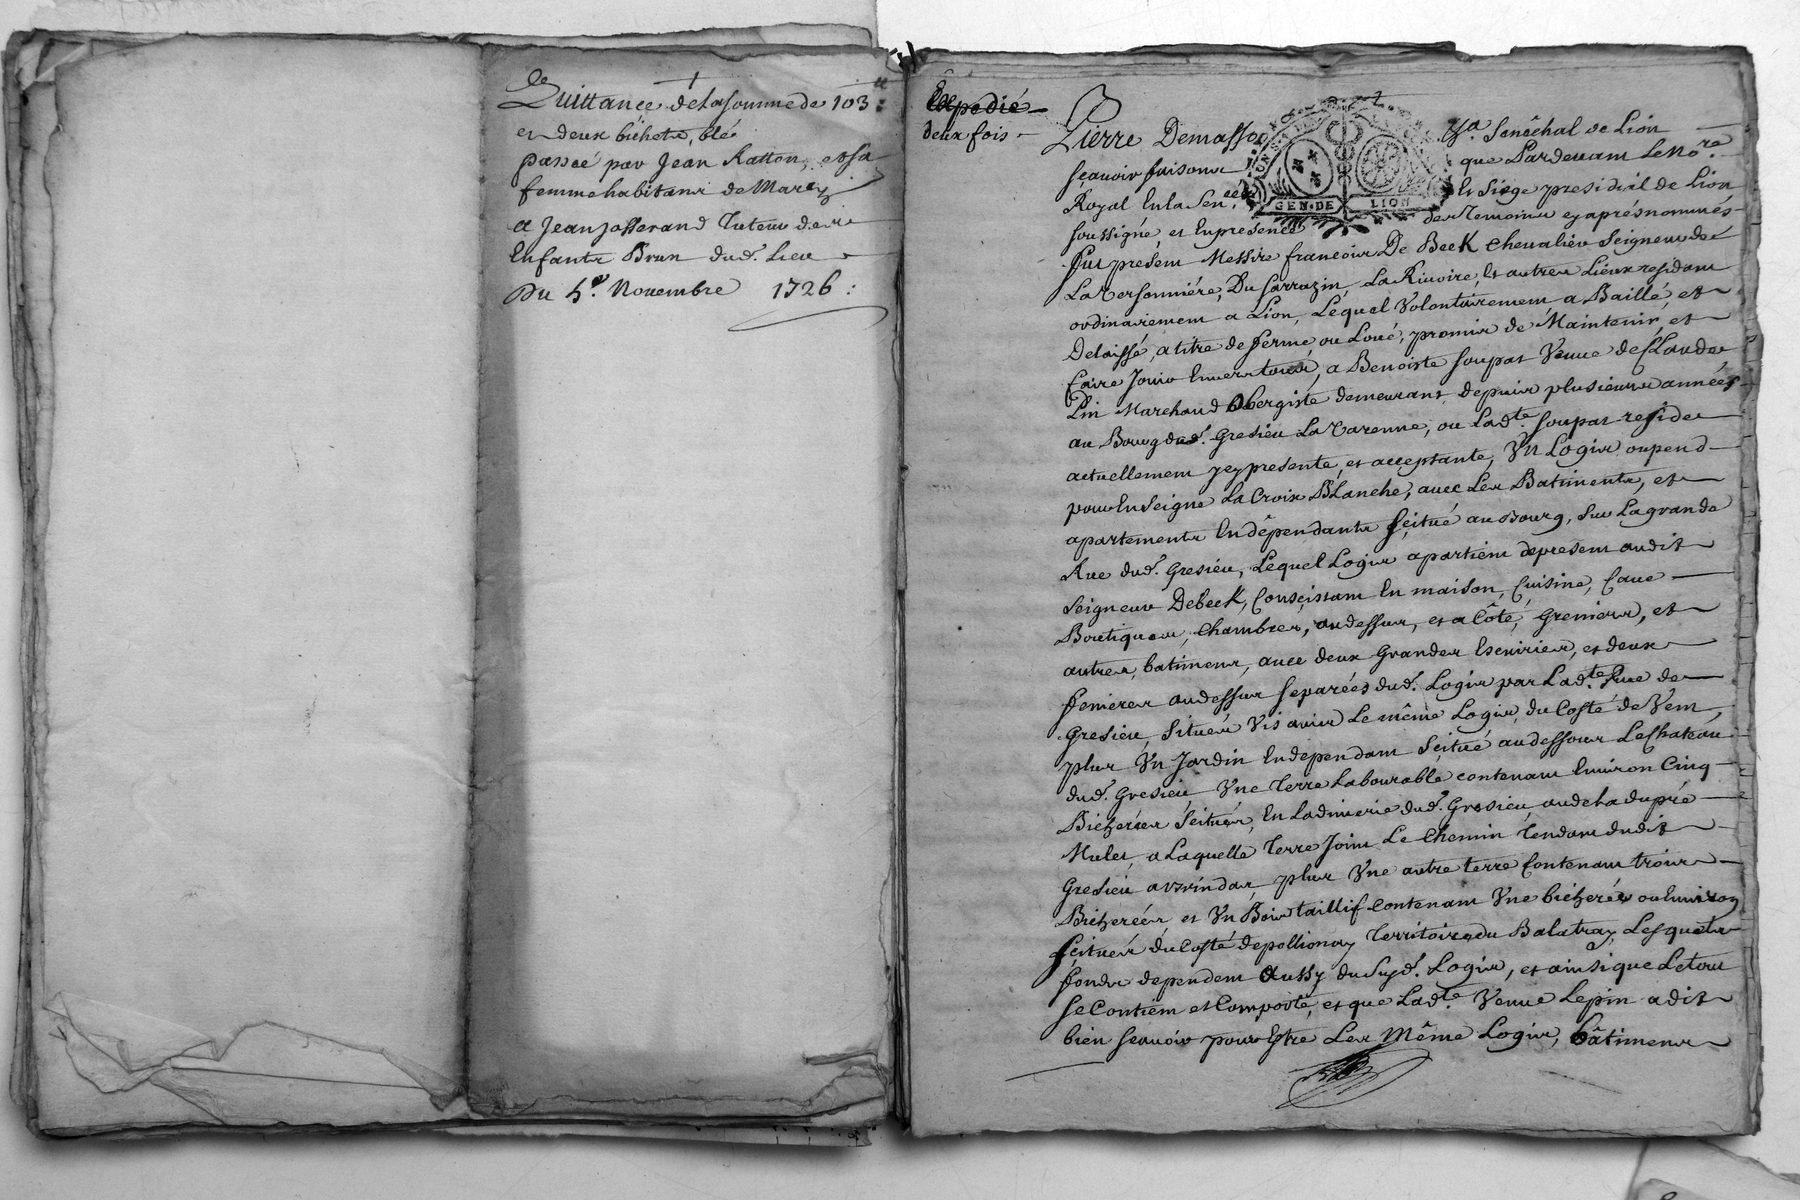 Quittance de la somme de 103ᵗᵗ:
et deux bichets, blé
passée par Jean Ratton, et sa
femme habitans de Marcy
a Jean Josserand Tuteur de
Enfants Brun dud. Lieu
Du 4e. Novembre 1726:
Expedié
deux fois
Pierre Demasso sga. Senêchal de Lion
scavoir faisons que Pardevant Le Nore.
Royal En la Sen.ée Et Siege presidial de Lion
soussigné, et En presence des Temoins cy aprés nommés
fut present Messire francois De Beek Chevalier Seigneur de
La Versonniére, Du Sarrazin, La Rivoire, Et autres Lieux residant
ordinairement a Lion, Lequel Volontairement a Baillé, et
Delaissé, a titre de ferme ou Loué, promis de Maintenir, et
faire Jouir Envers tous, a Benoiste Soupat Veuve de Claude
Pin Marchand Obergiste demeurans depuis plusieurs années
au Bourg dud. Gresieu La Varenne, ou Ladte. Soupat reside
actuellement ycy presente, et acceptante, Vn Logis ou pend
pour Enseigne La Croix Blanche, avec Les Batiments, et
apartements Endêpendants Scitué au Bourg, Sur La grande
Rue dud. Gresieu, Lequel Logis apartient de present audit
Seigneur Debeek, Consistant En maison, Cuisine, Cave
Boutiques, Chambres, au dessus, et a Côté, Greniers, et
autres, batimens, avec deux Grandes Ecuiries, et deux
fenieres au dessus separées dud. Logis par Ladte. Rue de
Gresieu, Situées Vis avis Le même Logis, du Costé de Vent,
plus Vn Jardin Endependant Scitué au dessous Le Chateau
dud. Gresieu Vne Terre Labourable contenant Environ Cinq
Bicherées Scitués, En La dimerie dud. Gresieu, au dela du pré
Mulet, a Laquelle Terre Joint Le Chemin Tendant dudit
Gresieu a yzindas, plus Vne autre terre Contenant trois
Bicherées et Vn Bois taillif Contenant Vne bicherée ou Environ
Scitués du Costé de pollionay Territoire du Balatray, Lesquels
fonds dependent Aussy du Susd. Logis, et ainsi que Le tout
se Contient et Comporte, et que Ladte. Veuve Lepin a dit
bien scavoir pour Estre Les Même Logis, bâtimens
GEN·DE LION